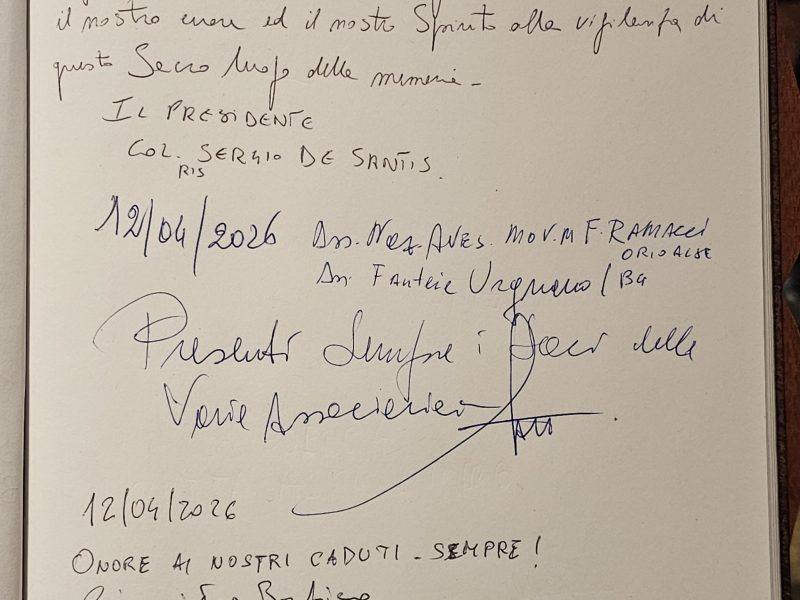 il nostro cuore ed il nostro Spirito alla vigilanza di
questo Sacro luogo delle memorie -
IL PRESIDENTE
COL. SERGIO DE SANTIS.
RIS
12/04/2026 Ass. Naz. AVES. MOV.M F. RAMACCI
ORIO AL SE
Ass. Fanteie Urgnano / BG
Presenti Sempre i Soci delle
Varie Associazioni
12/04/2026
ONORE AI NOSTRI CADUTI - SEMPRE!